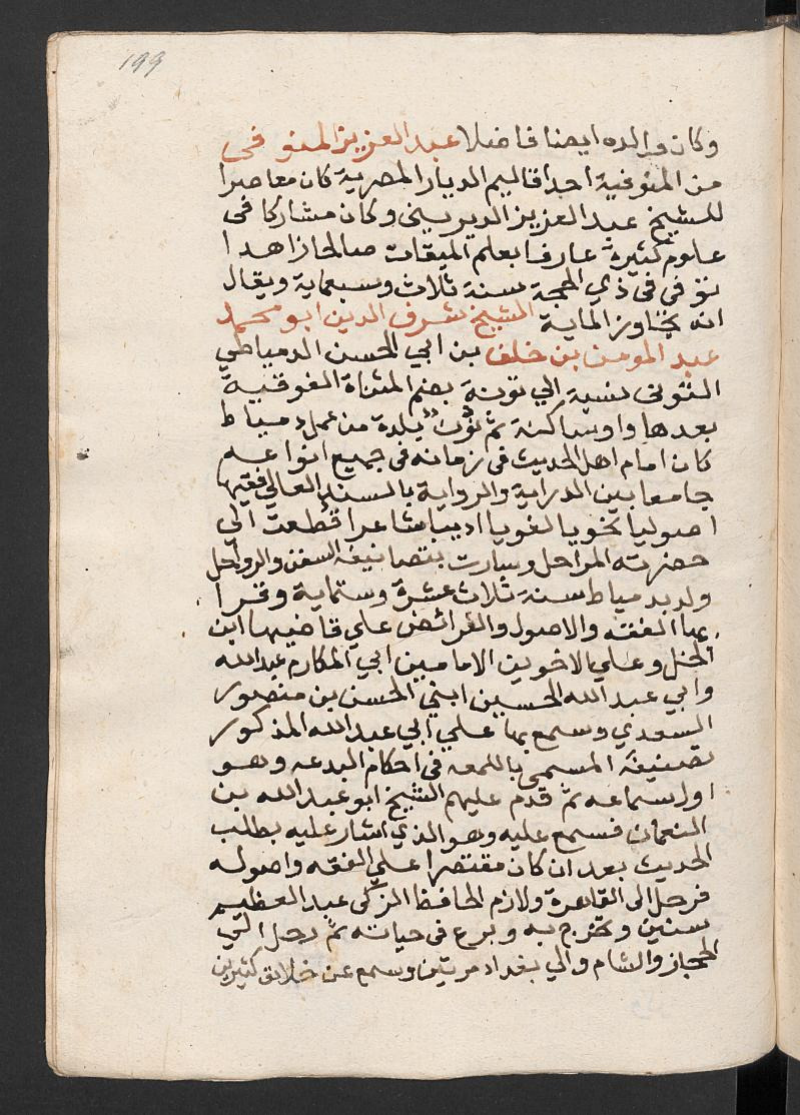 199
وكان والده ايضا فاضلا عبد العزيز المنوفى
من المنوفية احد اقاليم الديار المصرية كان معاصرا
للشيخ عبد العزيز الديرينى وكان مشاركا فى
علوم كثيرة عارفا بعلم الميقات صالحا زاهدا
توفى فى ذي الحجة سنة ثلاث وسبعماية ويقال
انه تجاوز الماية الشيخ شرف الدين ابو محمد
عبد المومن بن خلف بن ابي الحسن الدمياطي
التونى نسبة الي تونة بضم المثناة الفوقية
بعدها واو ساكنة ثم نون بلدة من عمل دمياط
كان امام اهل الحديث فى زمانه فى جميع انواعه
جامعا بين الدراية والرواية بالسند العالي فقيها
اصوليا نحويا لغويا اديبا شاعرا قطعت الي
حضرته المراحل وسارت بتصانيفه السفن والرواحل
ولد بدمياط سنة ثلاث عشرة وستماية وقرا
بها الفقه والاصول والفرائض علي قاضيها ابن
الخل وعلي الاخوين الامامين ابي المكارم عبد الله
وابي عبد الله الحسين ابني الحسن بن منصور
السعدي وسمع بها علي ابي عبد الله المذكور
تصنيفه المسمى باللمعه فى احكام البدعه وهو
اول سماعه ثم قدم عليهم الشيخ ابو عبد الله بن
النعمان فسمع عليه وهو الذي اشار عليه بطلب
الحديث بعد ان كان مقتصرا علي الفقه واصوله
فرحل الى القاهرة ولازم الحافظ المزكى عبد العظيم
سنين وتخرج به وبرع فى حياته ثم رحل الي
الحجاز والشام والي بغداد مرتين وسمع عن خلائق كثيرين